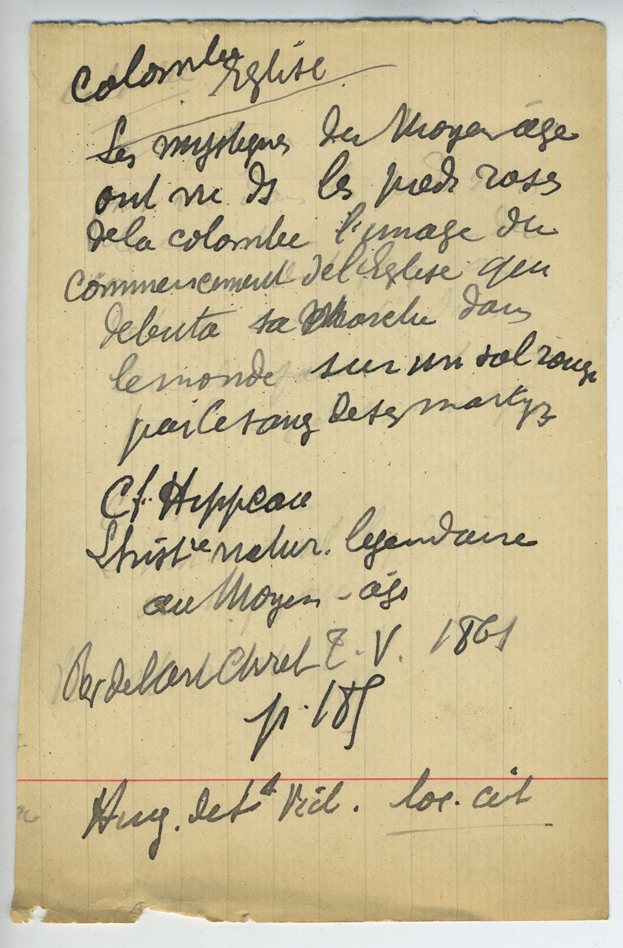 Colombe Eglise
Les mystiques du Moyen âge
ont vu ds les pieds roses
de la colombe l'image du
commencement de l'Eglise qui
debuta sa Marche dans
le monde sur un sol rougi
par le sang de ses martyrs
Cf. Hippeau
L'hist.re natur. legendaire
au Moyen-âge
Rev de l'art Chret T. V. 1861
p. 185
Hug. de St Vict. loc. cit